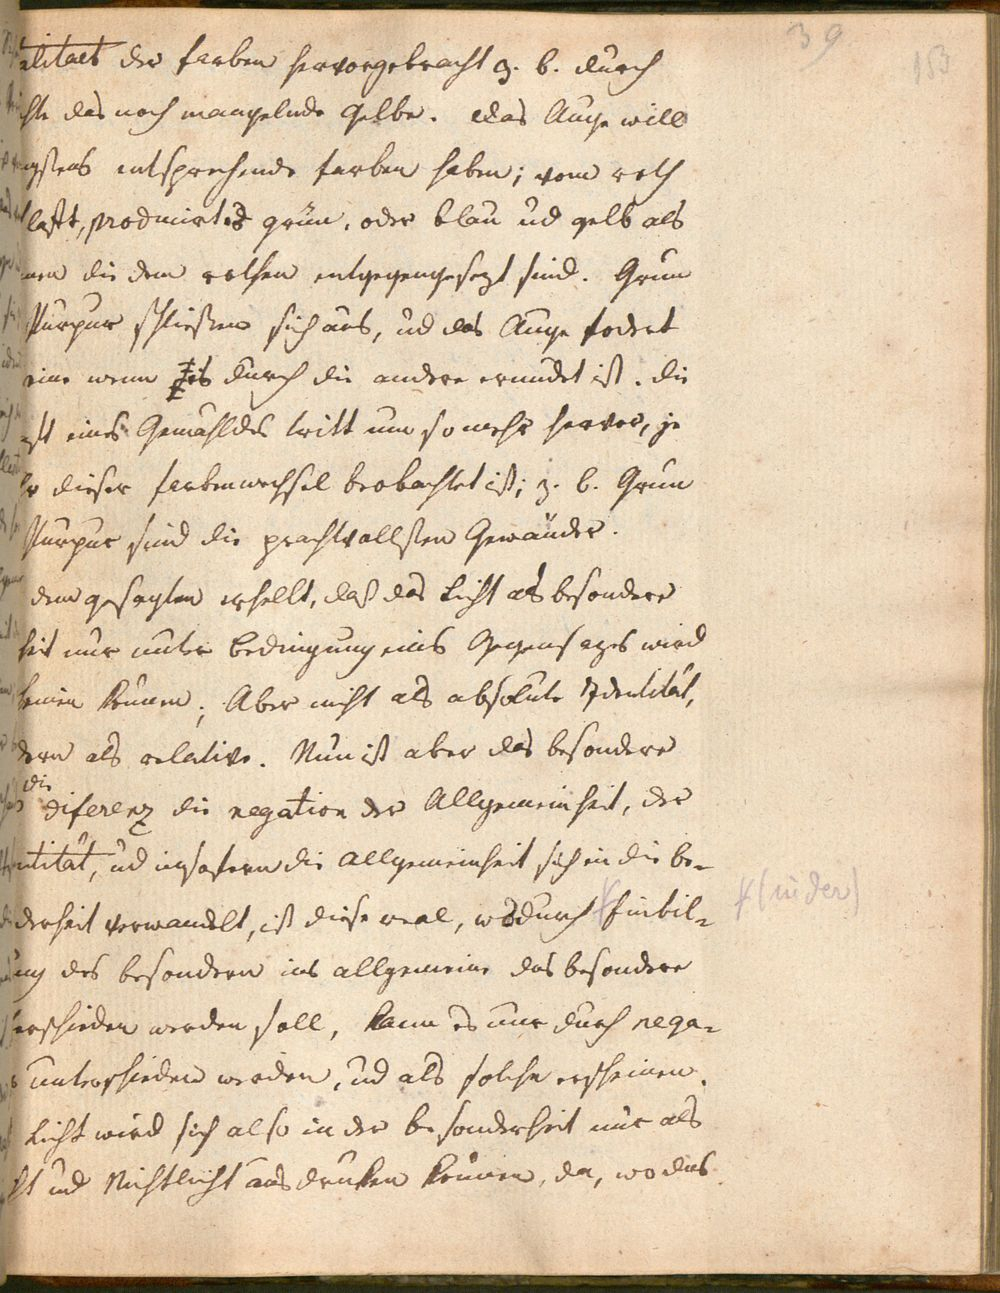 39
153
alitaet der farben hervorgebracht z. b. durch
chte das noch mangelnde gelbe. Das Auge will
gstens entsprechende farben haben; vom roth
laßt, producirt es grün, oder blau ud gelb als
men die dem rothen entgegengesezt sind. Grun
Purpur schließen sich aus, ud das Auge fodert
eine wenn es durch die andere ermüdet ist. die
st eines Gemähldes tritt um so mehr hervor, je
hr dieser farbenwechsel beobachtet ist; z. b. Grun
Purpur sind die prachtvollsten Gewänder.
dem gesagten erhellt, daß das Licht als besondere
heit nur unter Bedingung eins Gegensazes wird
heinen können; Aber nicht als absolute Identität,
dern als relative. Nun ist aber das besondere
die
diferenz die negation der Allgemeinheit, der
ntität, ud insofern die allgemeinheit sich in die be-
derheit verwandelt, ist diese real, wodurch Einbil-
(in der)
ung des besondern ins allgemeine das besondere
erschieden werden soll, kann es nur durch nega-
unterschieden werden, ud als solche erscheinen.
Licht wird sich also in der besonderheit nur als
ht ud Nichtlicht ausdruken können, da, wo das